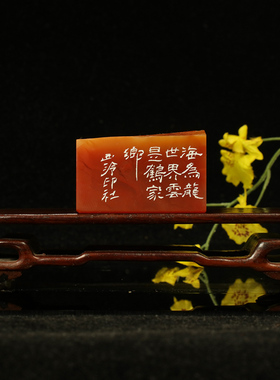 海為龍
世界雲
是鶴家
鄉
西泠印社